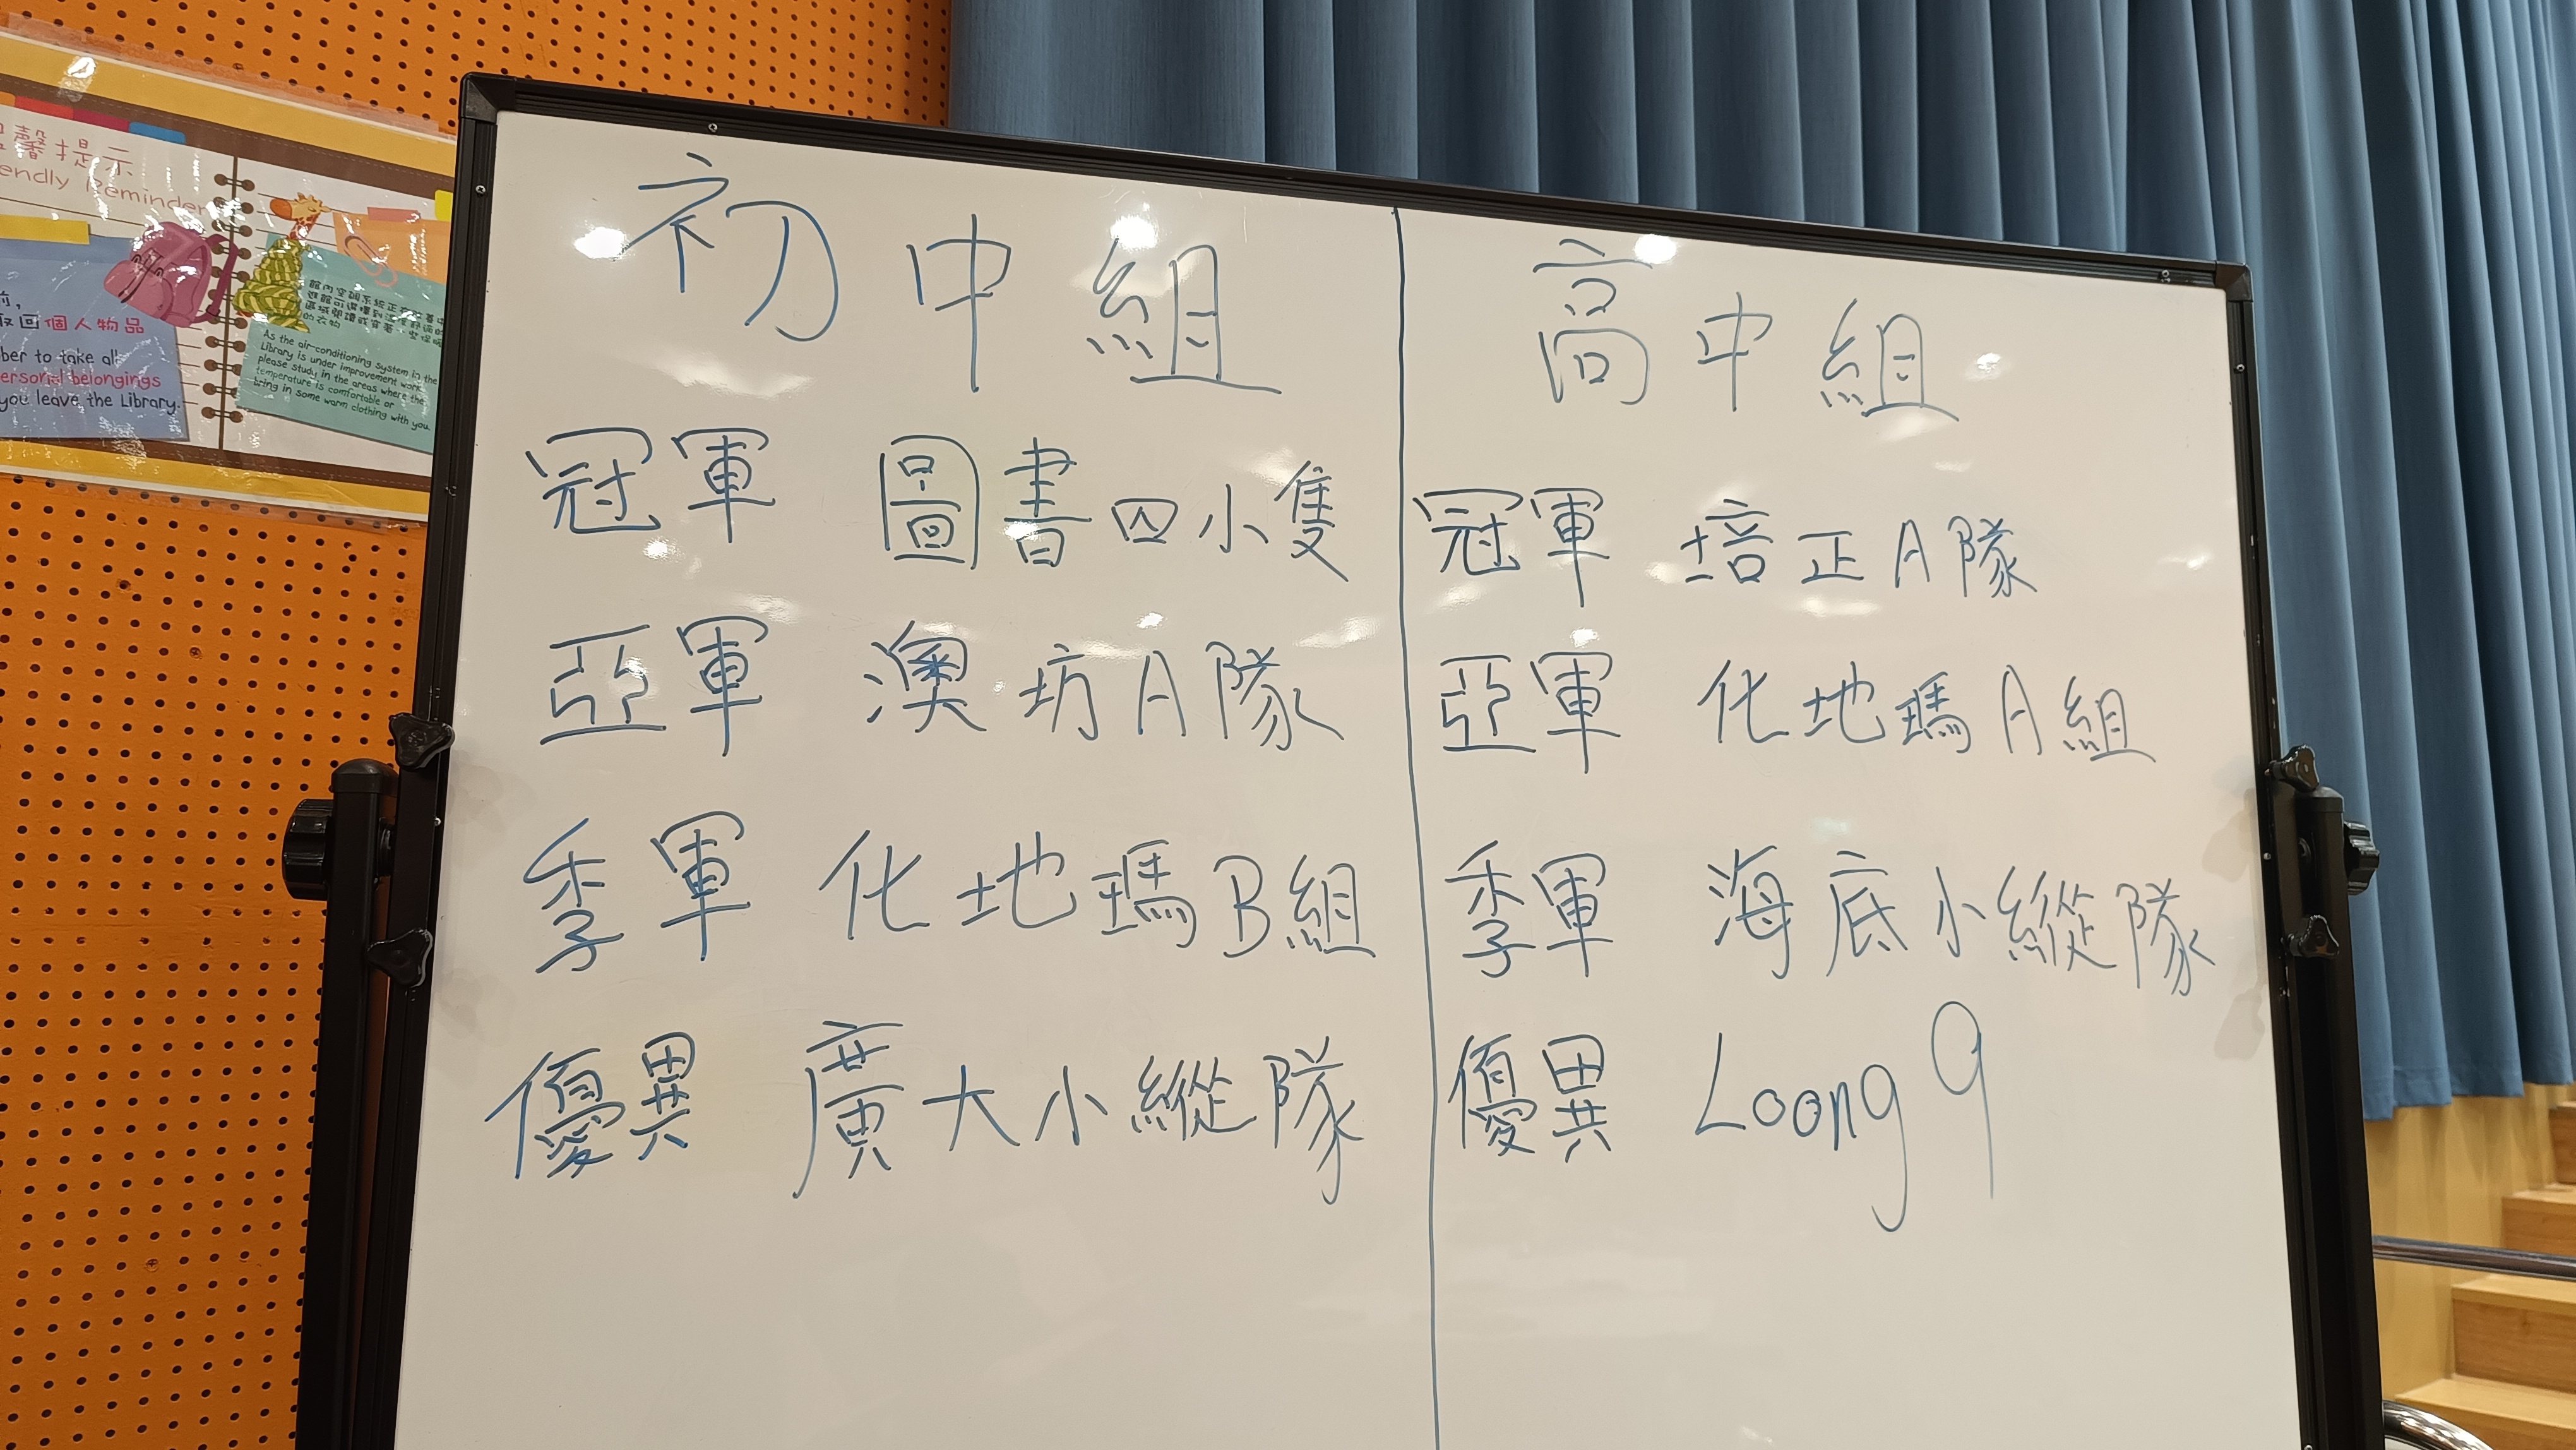 馨提示
endly Reminder
前,
取回個人物品
ber to take all
ersonal belongings
you leave the Library.
As the air-conditioning system in the
Library is under improvement work
please study in the areas where the
temperature is comfortable or
bring in some warm clothing with you
初中組
冠軍 圖書四小隻
亞軍 澳坊A隊
季軍 化地瑪B組
優異 廣大小縱隊
高中組
冠軍 培正A隊
亞軍 化地瑪A組
季軍 海底小縱隊
優異 Loong 9